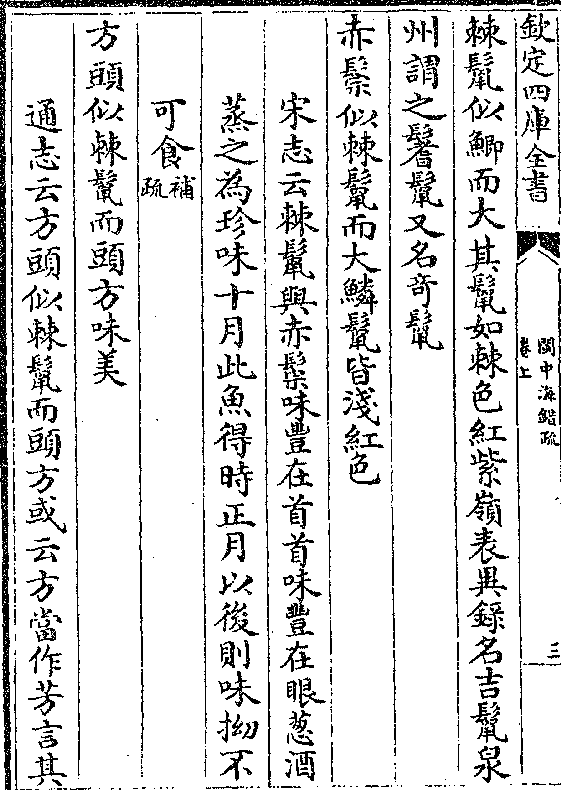 欽定四庫全書
閩中海錯疏
卷上
三
棘鬛似鯽而大其鬛如棘色紅紫嶺表異錄名吉鬛泉
州謂之髻鬛又名奇鬛
赤鬃似棘鬛而大鱗鬛皆淺紅色
宋志云棘鬛與赤鬃味豐在首首味豐在眼葱酒
蒸之為珍味十月此魚得時正月以後則味拗不
可食補疏
方頭似棘鬛而頭方味美
通志云方頭似棘鬛而頭方或云方當作芳言其